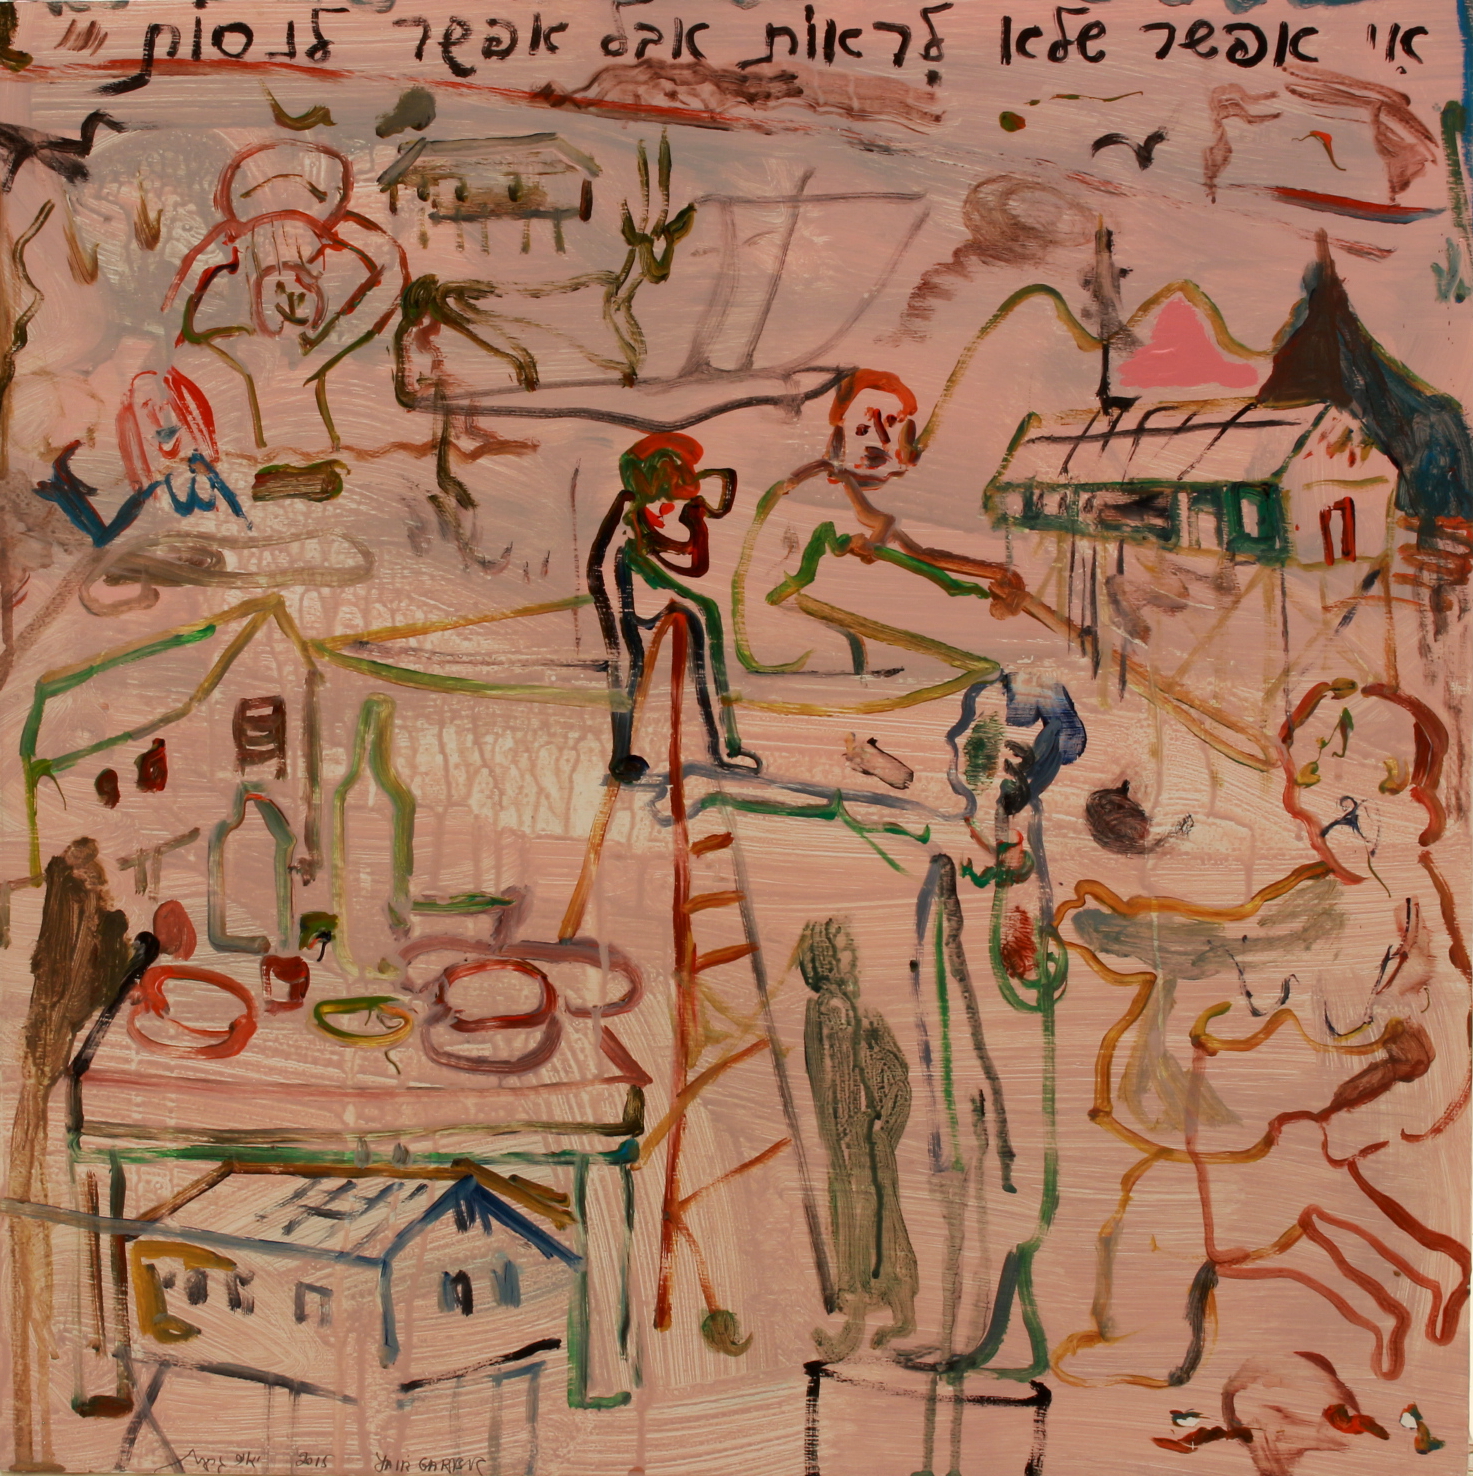 אִי אפשר שלא לִרְאוֹת אבל אפשר לנסות
יאיר גרבוז 2015 YAIR GARBUZ